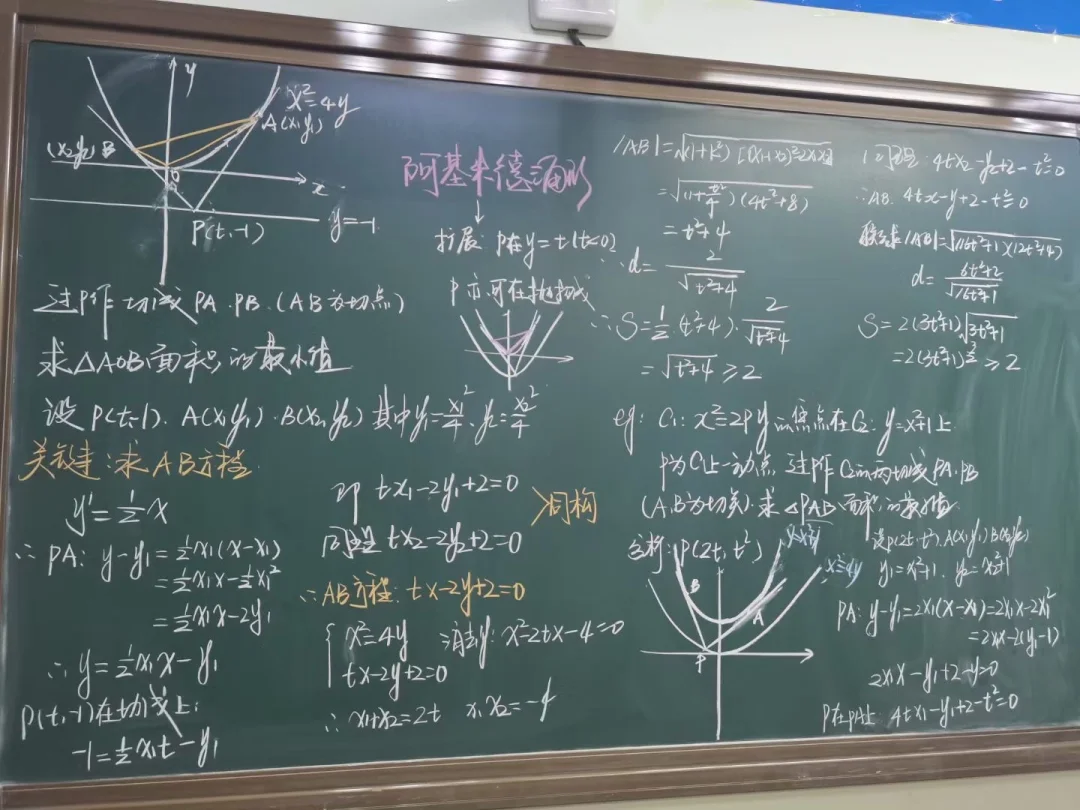 y
x²=4y
A(x₁y₁)
(x₂y₂)B
O
x
P(t,-1)
y=-1
阿基米德三角形
↓
扩展: P在y=t(t<0)
P亦可在抛物线
过P作切线PA.PB.(AB为切点)
求△AOB面积的最小值
设 P(t,-1). A(x₁y₁).B(x₂y₂) 其中y₁=x₁²/4, y₂=x₂²/4
关键:求AB方程
y'=½x
∴ PA: y-y₁=½x₁(x-x₁)
=½x₁x-½x₁²
=½x₁x-2y₁
∴ y=½x₁x-y₁
P(t,-1)在切线上:
-1=½x₁t-y₁
即 tx₁-2y₁+2=0
同理 tx₂-2y₂+2=0
>同构
∴AB方程: tx-2y+2=0
{x²=4y
tx-2y+2=0
消去y: x²-2tx-4=0
∴ x₁+x₂=2t x₁x₂=-4
|AB|=√(1+k²)[(x₁+x₂)²-2x₁x₂]
=√(1+t²/4)(4t²+8)
=t²+4
∴d=2/√t²+4
∴S=½·(t²+4)·2/√t²+4
=√t²+4≥2
eg: C₁: x²=2py的焦点在C₂: y=x²+1上.
P为C₁上一动点 过P作C₂的两切线PA.PB
(A,B为切点).求△PAB面积的最小值
分析: P(2t, t²)
y=x²+1
x²=4y
B
A
P
设P(2t,t²).A(x₁y₁)B(x₂y₂)
y₁=x₁²+1 y₂=x₂²+1
PA: y-y₁=2x₁(x-x₁)=2x₁x-2x₁²
=2x₁x-2(y₁-1)
2x₁x-y₁+2-y=0
P在PA上 4tx₁-y₁+2-t²=0
同理: 4tx₂-y₂+2-t²=0
∴AB: 4tx-y+2-t²=0
联立求|AB|=√(16t²+1)(12t²+4)
d=6t²+2/√16t²+1
S=2(3t²+1)√3t²+1
=2(3t²+1)^(3/2)≥2